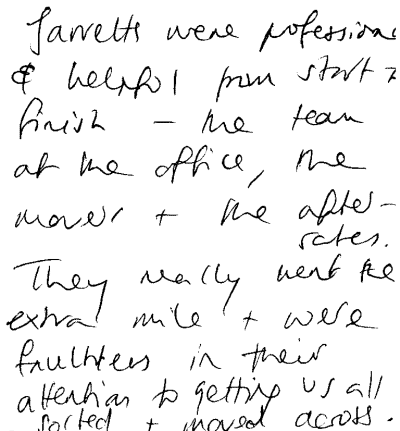 Jarretts were professiona
& helpful from start t
finish - the team
at the office, the
movers + the after-
sales.
They really went the
extra mile + were
faultless in their
attention to getting us all
sorted + moved across.